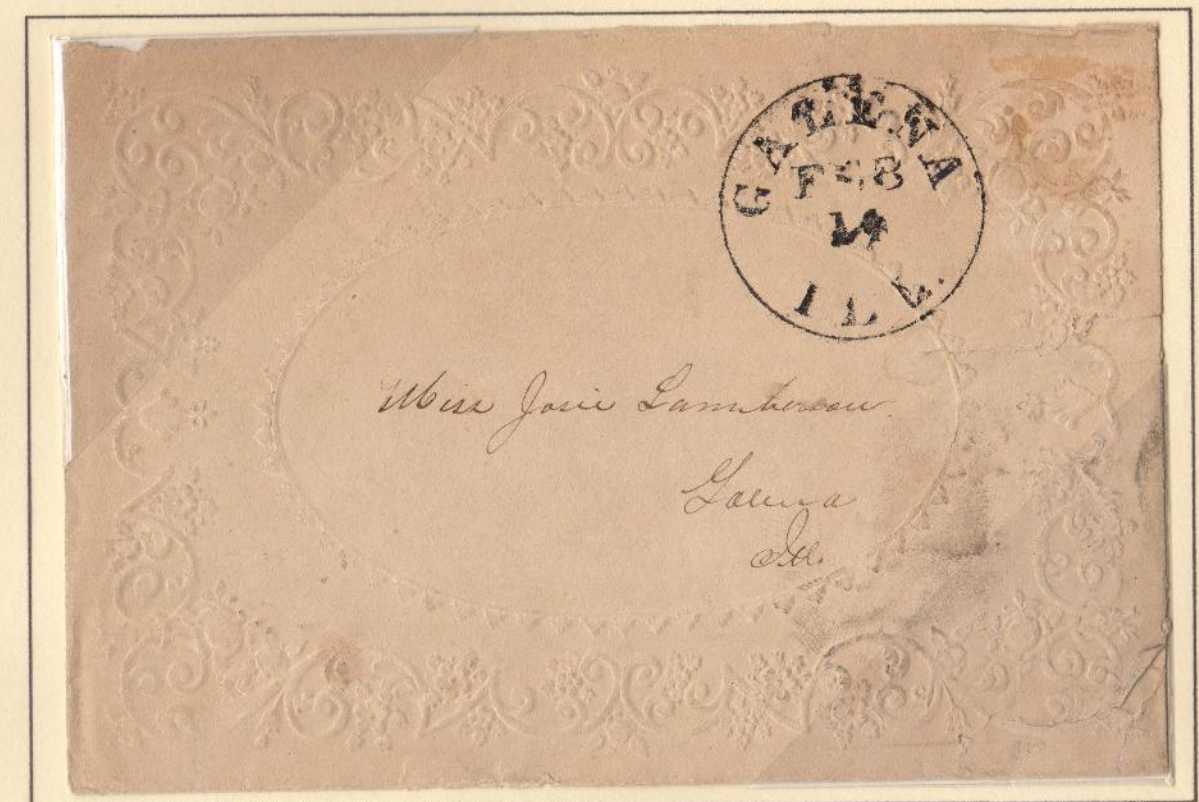 GALENA
FEB
14
ILL.
Miss Josie Lamberson.
Galena
Ill.